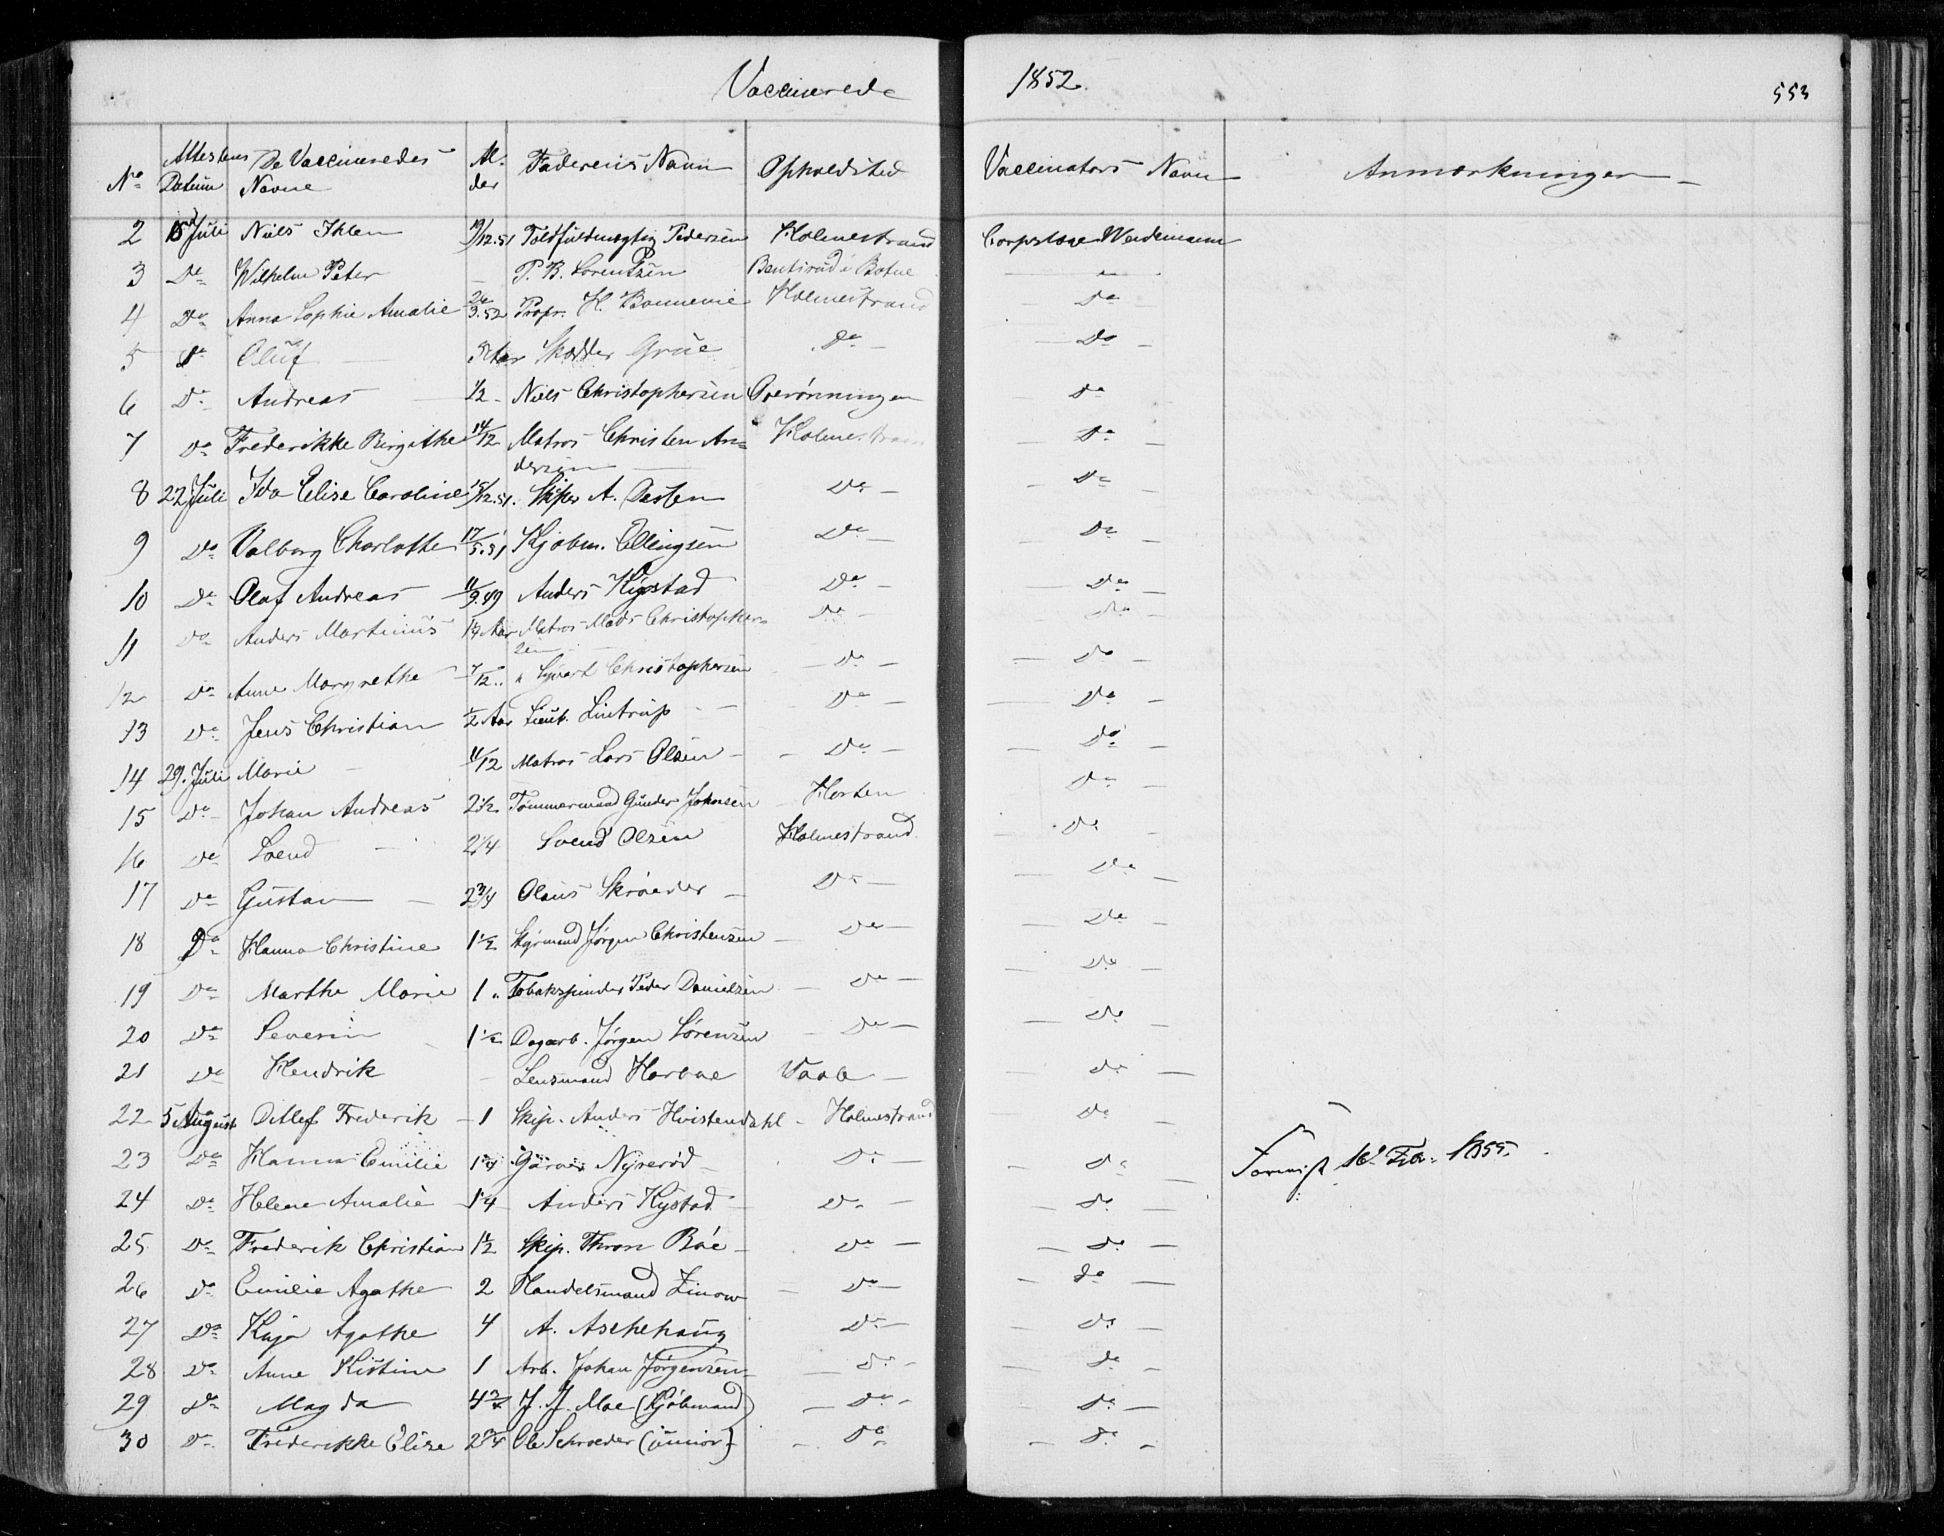 Vaccinerede 1852. 553
No Attestens Datum De Vaccineredes Navne Alder Faderens Navn Opholdsted Vaccinators Navn Anmærkninger
2 15 Juli Niels Ihlen 12.51 Toldfuldmægtig Pedersen Holmestrand Corpslæge
3 Do Wilhelm Peter — P. B. Lorentzen i Botne — " —
4 Do Anna Sophie Amalie 26/3.52 Propr. H. Bonnevie Holmestrand — Do —
5 Do Oluf — Aar Skædder Grue Do — — Do —
6 Do Andreas — 1/2 - Niels Christophersen Overønningen Do —
7 Do Frederikke Birgithe 14/12 Matros Christen An= Holmestrand — Do —
dersen —
8 22 Juli Ida Elise Caroline 15/12.51. Skiper A. Do — — Do —
9 Do Valborg Charlotte 17/5.51 Kjøbm. Ellingsen Do — — Do —
10 Do Olaf Andreas — 11/9.49 Anders Kystad Do — — Do —
11 Do Anders Martinus Aar Matros Mads Christopher= Do — — Do —
sen —
12 Do Anne Margrethe — 7/12 .. " Christophersen — Do — — Do —
13 Do Jens Christian 1/2 Aar Lieut. Lintrup — — — Do — — Do —
14 29. Juli Marie — 11/12 Matros Lars Olsen — — Do — — Do —
15 Do Johan Andreas 2 1/2 Tømmermand Gunder Johnsen — Horten — Do —
16 Do Svend — 2 1/4 Svend Olsen Holmestrand — Do —
17 Do Gustav — 2 3/4 Olaus Skrøeder — Do — — Do —
18 Do Hanna Christine 1 1/2 Styrmand Jørgen Christensen — Do — — Do —
19 Do Marthe Marie 1 " Tobakspinder Peder Danielsen — Do — — Do —
20 Do Severin — 1 1/2 Dagarb. Jørgen Sørensen — Do — — Do —
21 Do Hendrik — Lensmand Horboe — Do —
22 5 August Ditlef Frederik — 1 Skip. Anders Hvistendahl — Holmestrand — Do —
23 Do Hanna Emilie 1 3/4 Garver Nyrerød — Do — — Do — Do Feb. 1855.
24 Do Helene Amalie 1/4 Anders Kystad — Do — — Do —
25 Do Frederik Christian 1 1/2 Skip. Thron Bøe — Do — — Do —
26 Do Emilie Agathe 2 Handelsmand Zinow — Do — — Do —
27 Do Kaja Agathe 4 A. Aschehoug Do — — Do —
28 Do Anne Kistine 1 Arb. Johan Jørgensen — — Do — — Do —
29 Do Magda 4 J. J. Moe (Kjøbmand) — Do — — Do —
30 Do Frederikke Elise 2 3/4 Ole Schrøeder (junior) — — Do — Do —